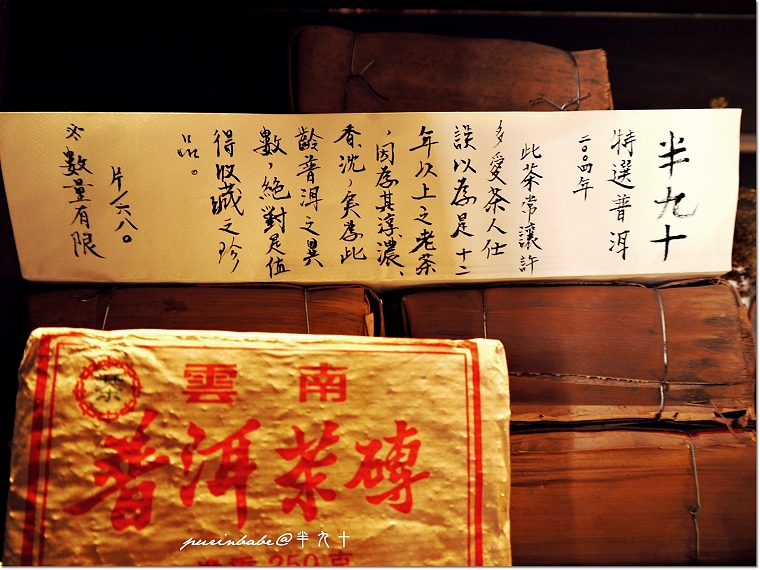 半九十
特選普洱
二〇〇四年
此茶常讓許
多愛茶人仕
誤以為是十二
年以上之老茶
,因為其淳濃、
香、沈,矣為此
齡普洱之異
數,絕對是值
得收藏之珍
品。
片/六八〇
數量有限
雲南
茶
普洱茶磚
purinbabe@半九十
淨重 250克